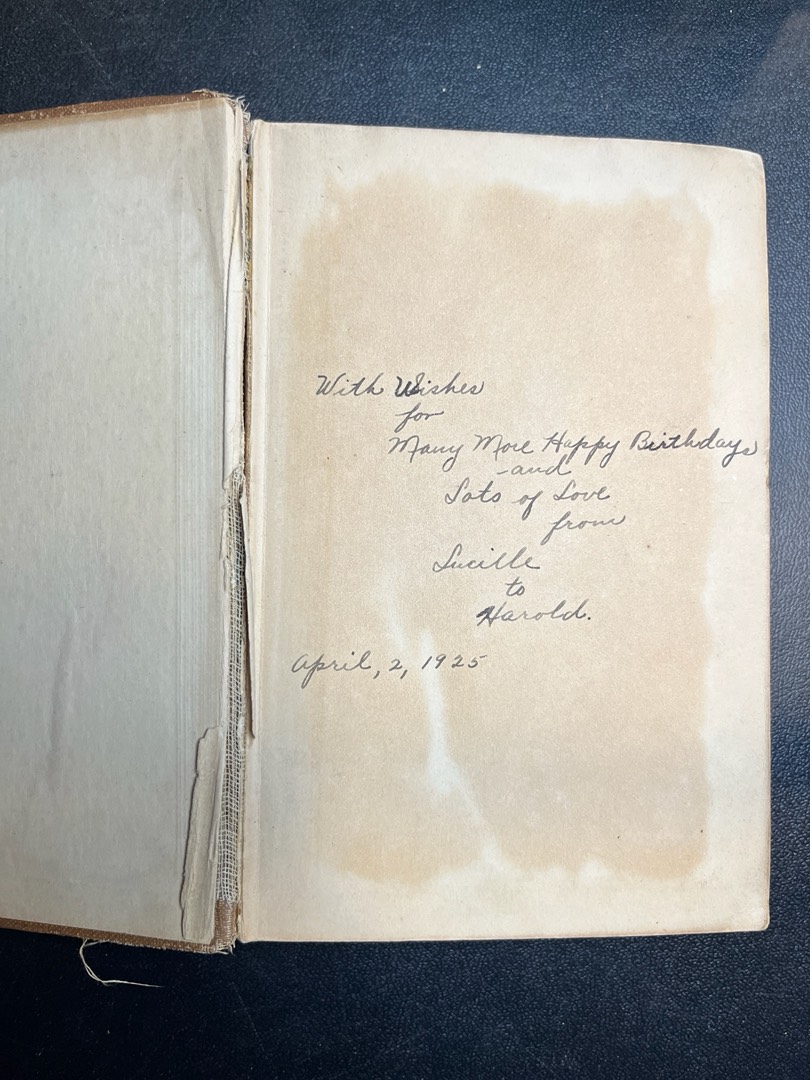 With Wishes
for
Many More Happy Birthdays
-and
Lots of Love
from
Lucille
to
Harold.
April, 2, 1925